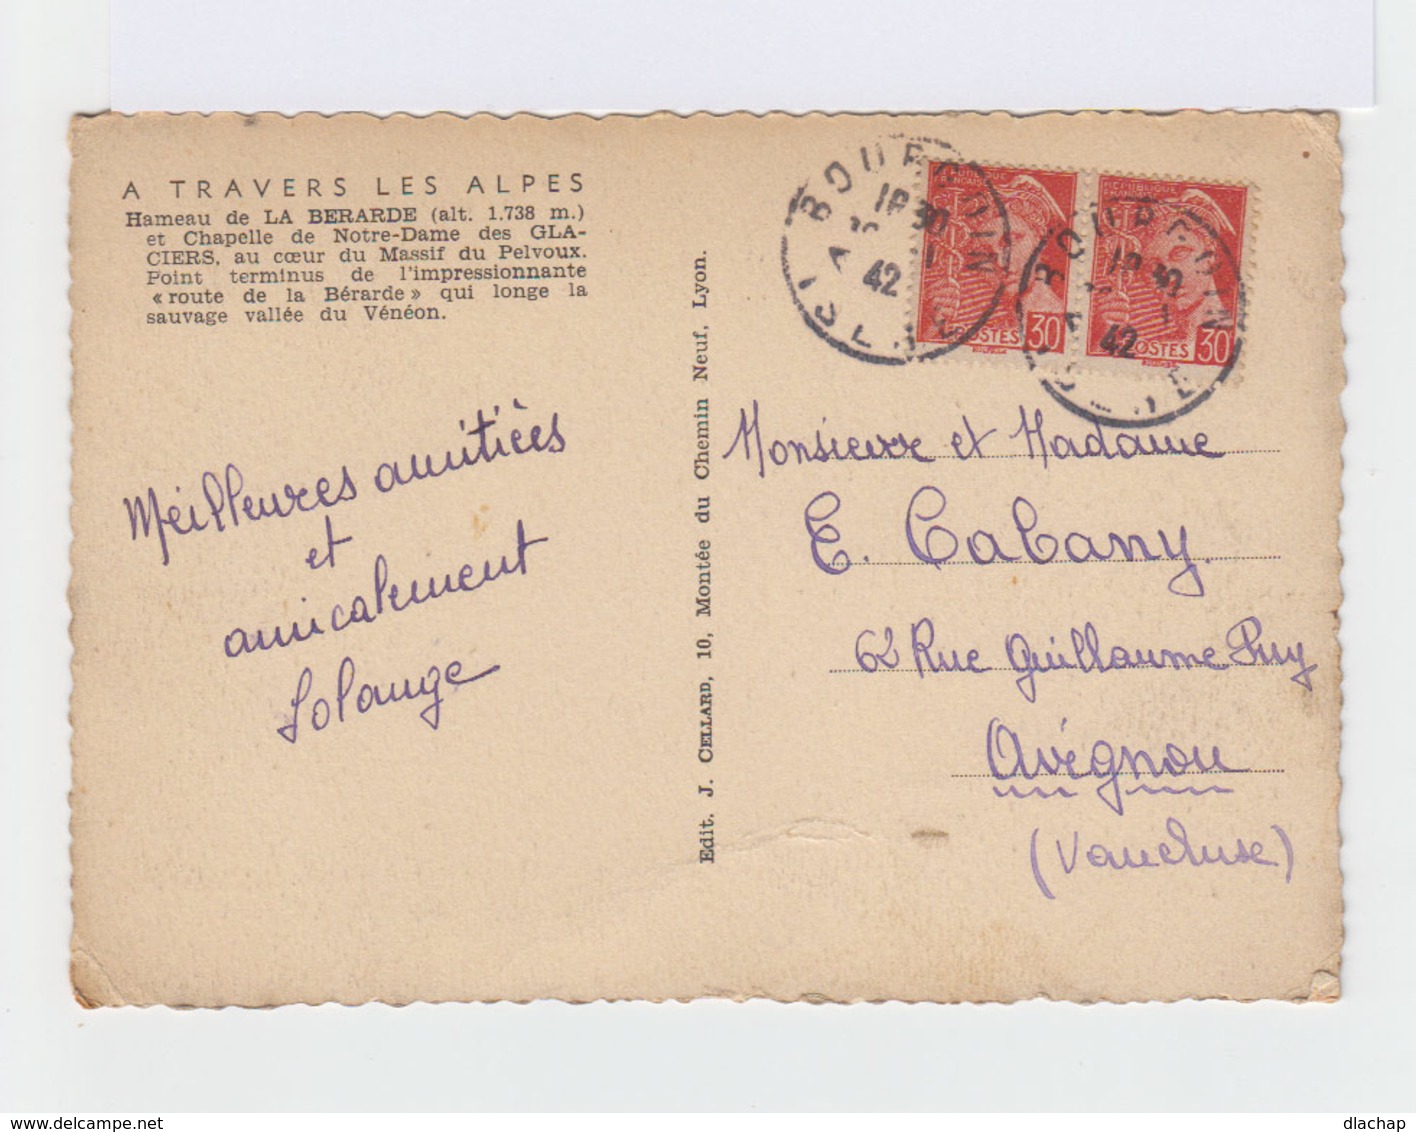 A TRAVERS LES ALPES
Hameau de LA BERARDE (alt. 1.738 m.)
et Chapelle de Notre-Dame des GLA-
CIERS, au cœur du Massif du Pelvoux.
Point terminus de l'impressionnante
« route de la Bérarde » qui longe la
sauvage vallée du Vénéon.
Meilleures amitiès
et
amicalement
Solange
Edit. J. CELLARD, 10, Montée du Chemin Neuf, Lyon.
BOURGOIN
18 30
42
ISÈRE
POSTES 30
RÉPUBLIQUE
BOURGOIN
18 30
42
POSTES 30
Monsieur et Madame
E. Cabany.
62 Rue Guillaume Puy
Avignon
(Vaucluse)
dlachap
www.delcampe.net